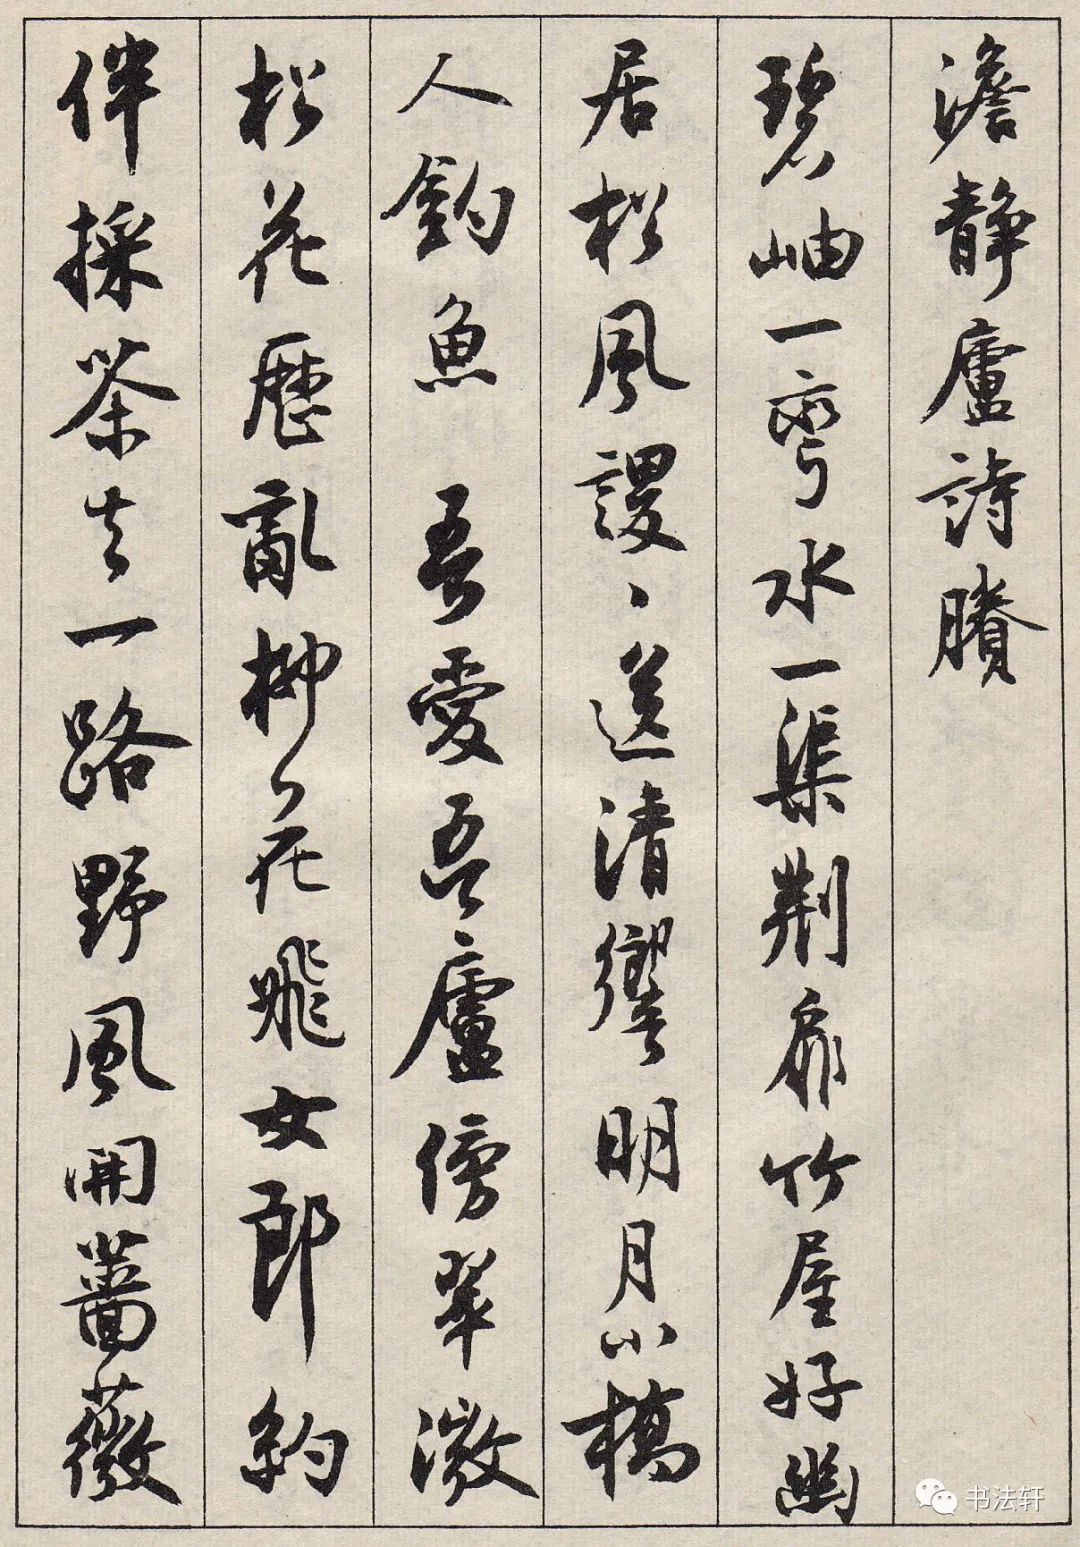 澹靜廬詩賸
碧岫一彎水一渠荆扉竹屋好幽
居松風謖、送清響明月小橋
人釣魚 吾愛吾廬傍翠微
松花歷亂柳花飛女郎約
伴採茶去一路野風開薔薇
书法轩